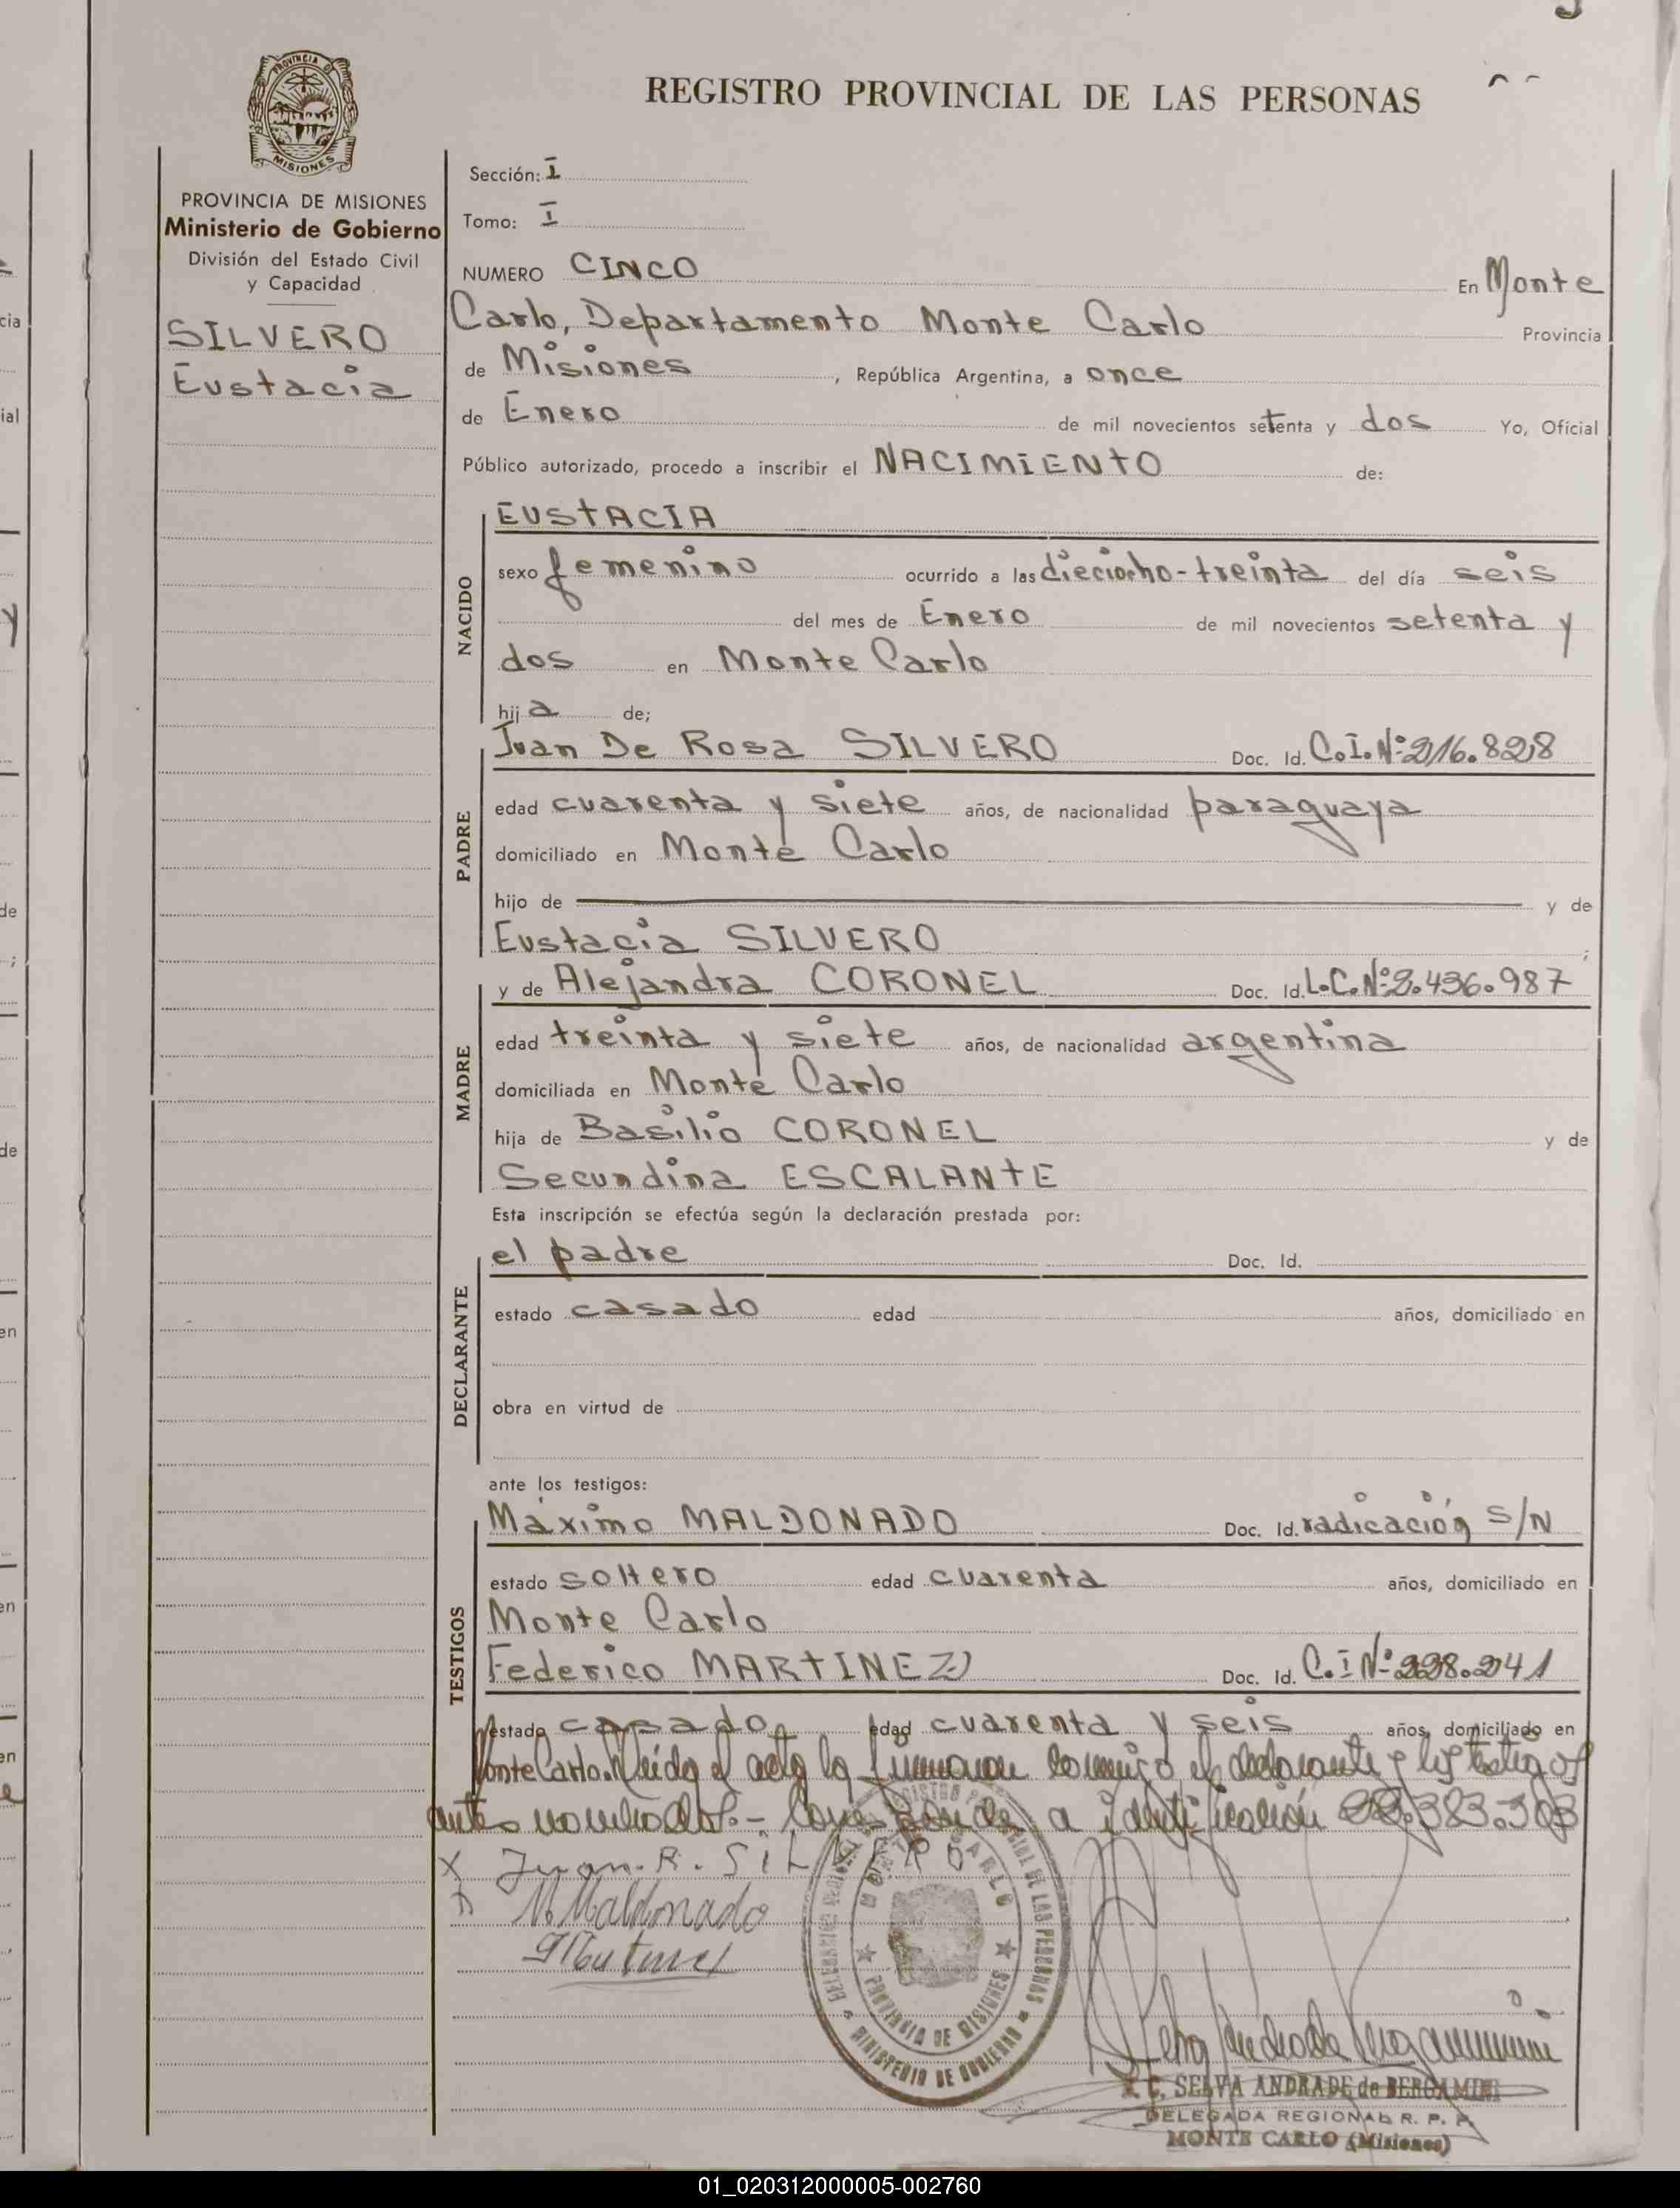 REGISTRO PROVINCIAL DE LAS PERSONAS
PROVINCIA DE
MISIONES
PROVINCIA DE MISIONES
Ministerio de Gobierno
División del Estado Civil
y Capacidad
SILVERO
Eustacia
Sección: I
Tomo: I
NUMERO CINCO En Monte
Carlo, Departamento Monte Carlo Provincia
de Misiones, República Argentina, a once
de Enero de mil novecientos setenta y dos Yo, Oficial
Público autorizado, procedo a inscribir el NACIMIENTO de:
NACIDO
EUSTACIA
sexo femenino ocurrido a las dieciocho-treinta del día seis
del mes de Enero de mil novecientos setenta y
dos en Monte Carlo
hija de;
PADRE
Juan De Rosa SILVERO Doc. Id. C.I.Nº 216.828
edad cuarenta y siete años, de nacionalidad paraguaya
domiciliado en Monte Carlo
hijo de y de
Eustacia SILVERO ;
MADRE
y de Alejandra CORONEL Doc. Id. L.C.Nº 2.436.987
edad treinta y siete años, de nacionalidad argentina
domiciliada en Monte Carlo
hija de Basilio CORONEL y de
Secundina ESCALANTE
Esta inscripción se efectúa según la declaración prestada por:
DECLARANTE
el padre Doc. Id.
estado casado edad años, domiciliado en
obra en virtud de
ante los testigos:
TESTIGOS
Máximo MALDONADO Doc. Id. radicación S/N
estado soltero edad cuarenta años, domiciliado en
Monte Carlo
Federico MARTINEZ Doc. Id. C.I Nº 228.241
estado casado edad cuarenta y seis años, domiciliado en
Monte Carlo. Leída el acta la firmaron conmigo el declarante y los testigos
antes nombrados.- Corresponde a identificación 22.383.303
X Juan. R. SILVERO
M. Maldonado
MINISTERIO DE GOBIERNO
PROVINCIA DE MISIONES
MONTE CARLO
Selva Andrade de Bergamini
E. C. SELVA ANDRADE de BERGAMINI
DELEGADA REGIONAL R. P. P.
MONTE CARLO (Misiones)
01_020312000005-002760